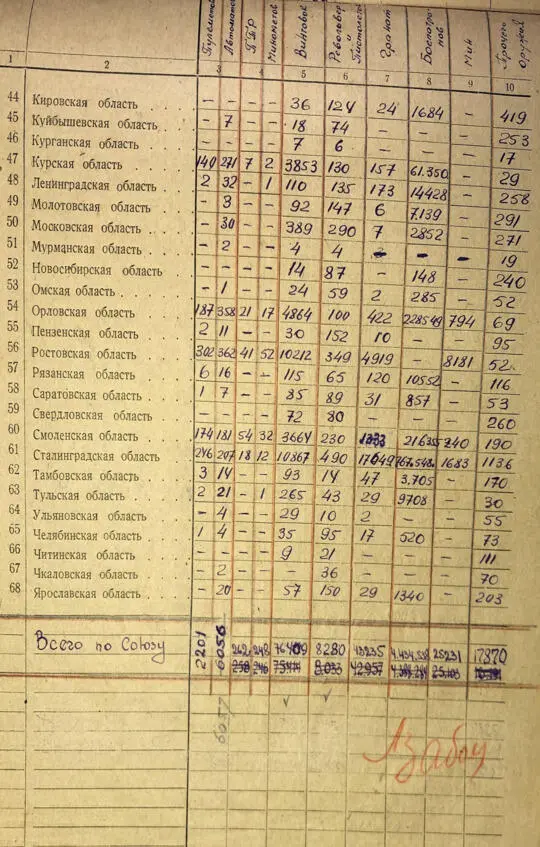 Пулеметов Автоматов ПТР Минометов Винтовок Револьвер. и Пистолетов Гранат Боепатронов Мин Прочего Оружия
1 2 3 4 5 6 7 8 9 10
44 Кировская область - - - - 36 124 24 1684 - 419
45 Куйбышевская область - 7 - - 18 74 - - - 253
46 Курганская область - - - - 7 6 - - - 17
47 Курская область 140 271 7 2 3853 130 157 61.350 - 29
48 Ленинградская область 2 32 - 1 110 135 173 14428 - 258
49 Молотовская область - 3 - - 92 147 6 7.139 - 291
50 Московская область - 30 - - 389 290 7 2852 - 271
51 Мурманская область - 2 - - 4 4 - - - 19
52 Новосибирская область - - - - 14 87 - 148 - 240
53 Омская область - 1 - - 24 59 2 285 - 52
54 Орловская область 187 358 21 17 4864 100 422 228549 794 69
55 Пензенская область 2 11 - - 30 152 10 - - 95
56 Ростовская область 302 362 41 52 10212 349 4919 - 8181 52
57 Рязанская область 6 16 - - 115 65 120 10552 - 116
58 Саратовская область 1 7 - - 85 89 31 857 - 53
59 Свердловская область - - - - 72 80 - - - 260
60 Смоленская область 174 181 54 32 3664 230 216355 240 190
61 Сталинградская область 246 207 18 12 10367 490 17649 767.548 1683 1136
62 Тамбовская область 3 14 - - 93 14 47 3.705 - 170
63 Тульская область 2 21 - 1 265 43 29 9708 - 30
64 Ульяновская область - 4 - - 29 10 2 - - 55
65 Челябинская область 1 4 - - 35 95 17 520 - 73
66 Читинская область - - - - 9 21 - - - 111
67 Чкаловская область - 2 - - - 36 - - - 70
68 Ярославская область - 20 - - 57 150 29 1340 - 203
Всего по Союзу 2201 6056 262 248 76409 8280 43235 4.434.538 25231 17870
258 246 75.414 8.033 42.957 25.103
6037